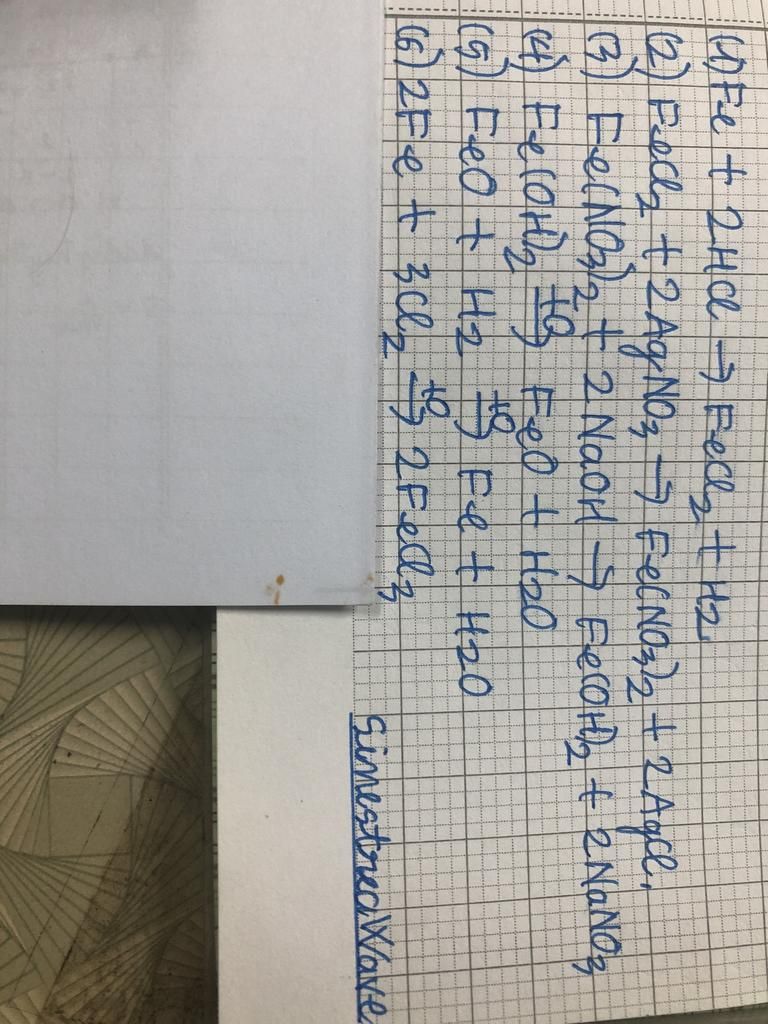 (1) Fe + 2HCl → FeCl₂ + H₂.
(2) FeCl₂ + 2AgNO₃ → Fe(NO₃)₂ + 2AgCl.
(3) Fe(NO₃)₂ + 2NaOH → Fe(OH)₂ + 2NaNO₃
(4) Fe(OH)₂ →(t°) FeO + H₂O
(5) FeO + H₂ →(t°) Fe + H₂O
(6) 2Fe + 3Cl₂ →(t°) 2FeCl₃
SimestreciWave